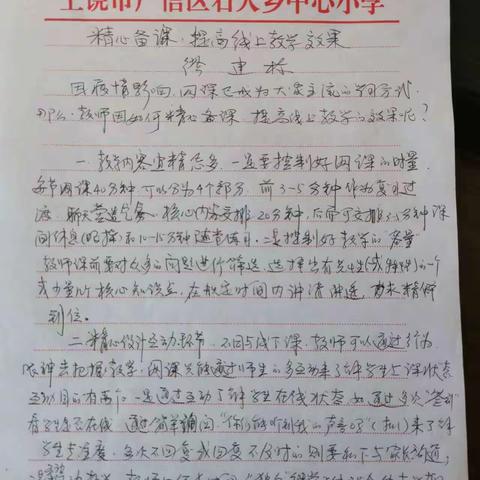 上饶市广信区石人乡中心小学
精心备课,提高线上教学效果
因疫情影响,网课已成为大家主流的学习方式,
那么,教师因如何精心备课,提高线上教学的效果呢?
一、教学内容宜精忌多,一定要控制好网课的时量,
每节网课40分钟,可以分为4个部分,前3-5分钟作为复习过
渡、聊天营造气氛,核心内容安排20分钟,后面可安排3-5分钟课
间休息(吃择)和10-15分钟随查练习。二是控制好教学的"容量"
教师课前要对众多的问题进行筛选,选择出有共性(或特殊)的一个
或少量几个核心知识点,在规定时间内讲清讲透,力求精师
到位。
二、精心设计互动环节,不同与线下课,教师可以通过行为、
眼神去把握教学,网课只能通过师生的多互动来了解学生上课状态
互动目的有两个,一是通过互动了解学生在线状态,如通过多次"签到"
看学生是否在线,通过简单询问"你们能听到我的声音吗"(扣1)来了解
学生专注度,多次不回复或回复不及时的则要私下与家长沟通;